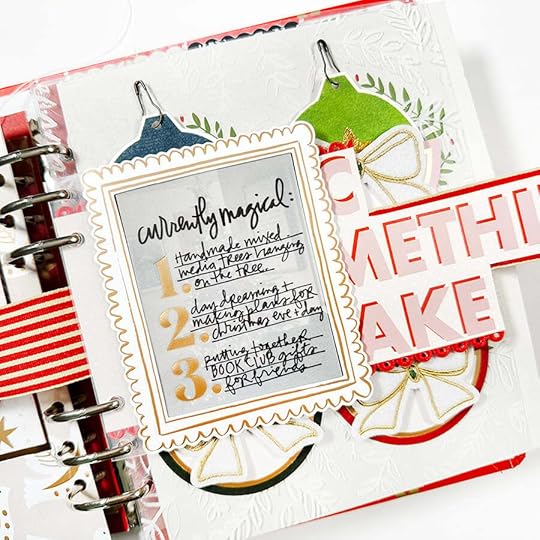 currently magical:
1. Handmade mixed
media trees hanging
on the tree.
2. day dreaming +
making plans for
christmas eve + day
3. putting together
BOOK CLUB gifts
for friends
C
METHI
AKE